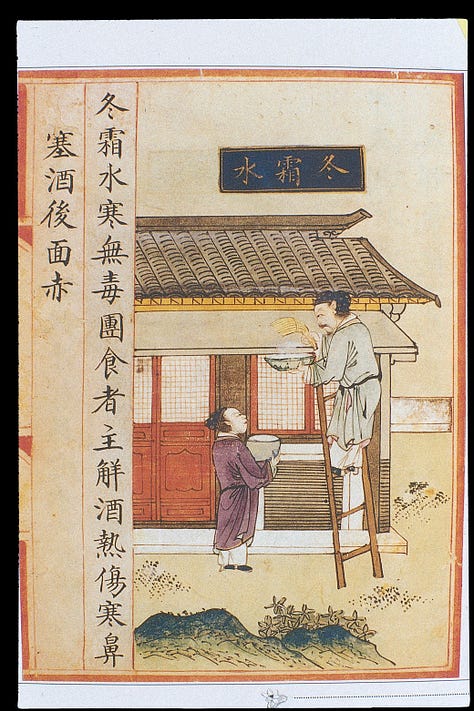 冬霜水
冬霜水寒無毒團食者主觧酒熱傷寒鼻
塞酒後面赤